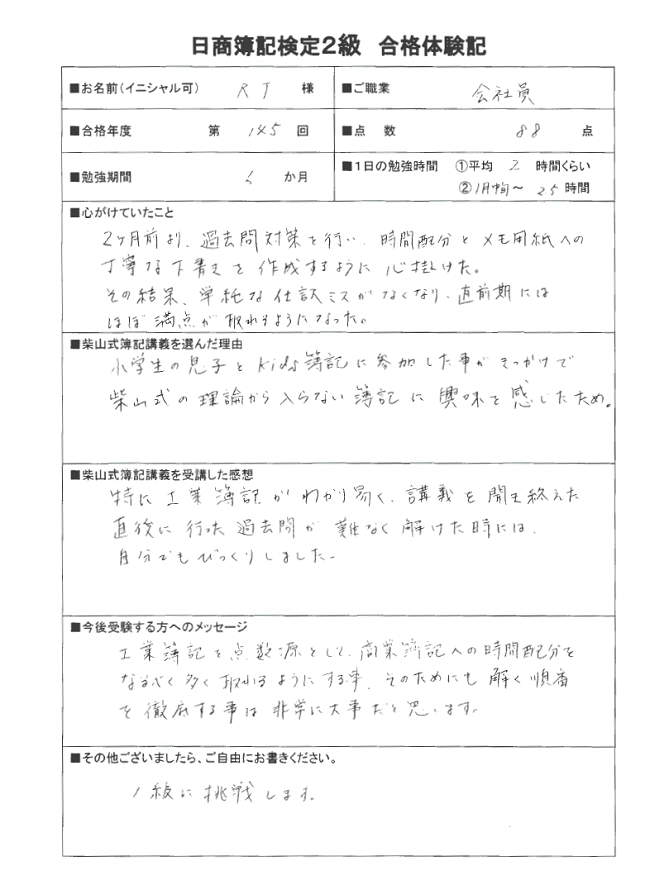 日商簿記検定2級 合格体験記
■お名前(イニシャル可) R T 様 ■ご職業 会社員
■合格年度 第 145 回 ■点 数 88 点
■勉強期間 か月 ■1日の勉強時間 ①平均 2 時間くらい
②1月中旬〜 2.5 時間
■心がけていたこと
2ヶ月前より、過去問対策を行い、時間配分とメモ用紙への
丁寧な下書きを作成するように心掛けた。
その結果、単純な仕訳ミスがなくなり、直前期には
ほぼ満点が取れるようになった。
■柴山式簿記講義を選んだ理由
小学生の息子とkids簿記に参加した事がきっかけで
柴山式の理論から入らない簿記に興味を感じたため。
■柴山式簿記講義を受講した感想
特に工業簿記がわかり易く、講義を聞き終えた
直後に行った過去問が難なく解けた時には、
自分でもびっくりしました。
■今後受験する方へのメッセージ
工業簿記を点数源として、商業簿記への時間配分を
なるべく多く取れるようにする事、そのためにも解く順番
を徹底する事は非常に大事だと思います。
■その他ございましたら、ご自由にお書きください。
1級に挑戦します。